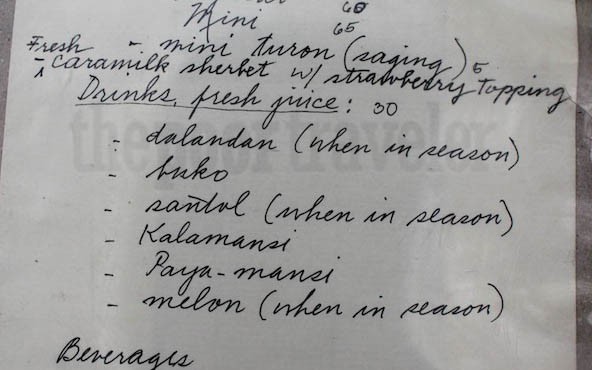 Mini 60
65
Fresh - mini turon (saging) 5
- caramilk sherbet w/ strawberry Topping
Drinks, fresh juice: 30
- dalandan (when in season)
- buko
- santol (when in season)
- Kalamansi
- Paya-mansi
- melon (when in season)
Beverages
the poor traveler